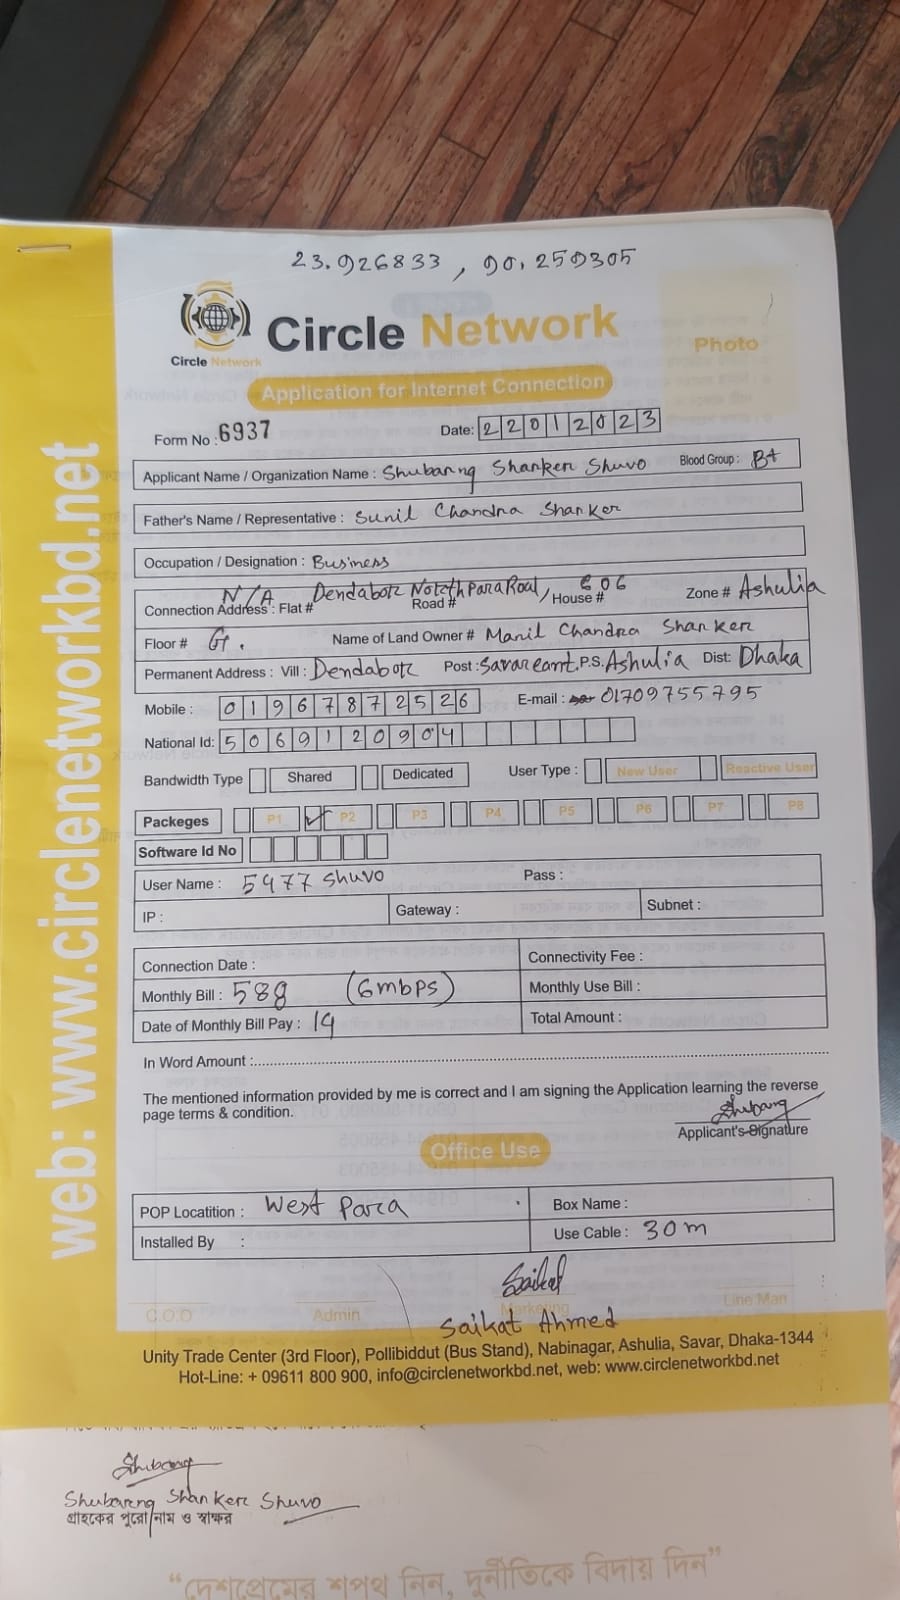 23.926833, 90.259305
Circle Network
Circle Network
Photo
Application for Internet Connection
Form No : 6937
Date: 22012023
Applicant Name / Organization Name : Shubarng Shanker Shuvo Blood Group : B+
Father's Name / Representative : Sunil Chandra Shanker
Occupation / Designation : Business
Connection Address : Flat # N/A Road # Dendabor Noteth Para Road, House # 606 Zone # Ashulia
Floor # G. Name of Land Owner # Manil Chandra Shanker
Permanent Address : Vill : Dendabor Post : Savarcant. P.S. Ashulia Dist: Dhaka
Mobile : 01967872526 E-mail : 01709755795
National Id: 5069120904
Bandwidth Type Shared Dedicated User Type : New User Reactive User
Packeges P1 ✓ P2 P3 P4 P5 P6 P7 P8
Software Id No
User Name : 5477 Shuvo Pass :
IP : Gateway : Subnet :
Connection Date : Connectivity Fee :
Monthly Bill : 588 (6mbps) Monthly Use Bill :
Date of Monthly Bill Pay : 14 Total Amount :
In Word Amount :
The mentioned information provided by me is correct and I am signing the Application learning the reverse
page terms & condition.
Shubarng
Applicant's Signature
Office Use
POP Locatition : West Para Box Name :
Installed By : Use Cable : 30m
Saikat
C.O.O Admin Marketing Line Man
Saikat Ahmed
Unity Trade Center (3rd Floor), Pollibiddut (Bus Stand), Nabinagar, Ashulia, Savar, Dhaka-1344
Hot-Line: + 09611 800 900, info@circlenetworkbd.net, web: www.circlenetworkbd.net
web: www.circlenetworkbd.net
Shubarng
Shubarng Shanker Shuvo
গ্রাহকের পুরো নাম ও স্বাক্ষর
“দেশপ্রেমের শপথ নিন, দুর্নীতিকে বিদায় দিন”